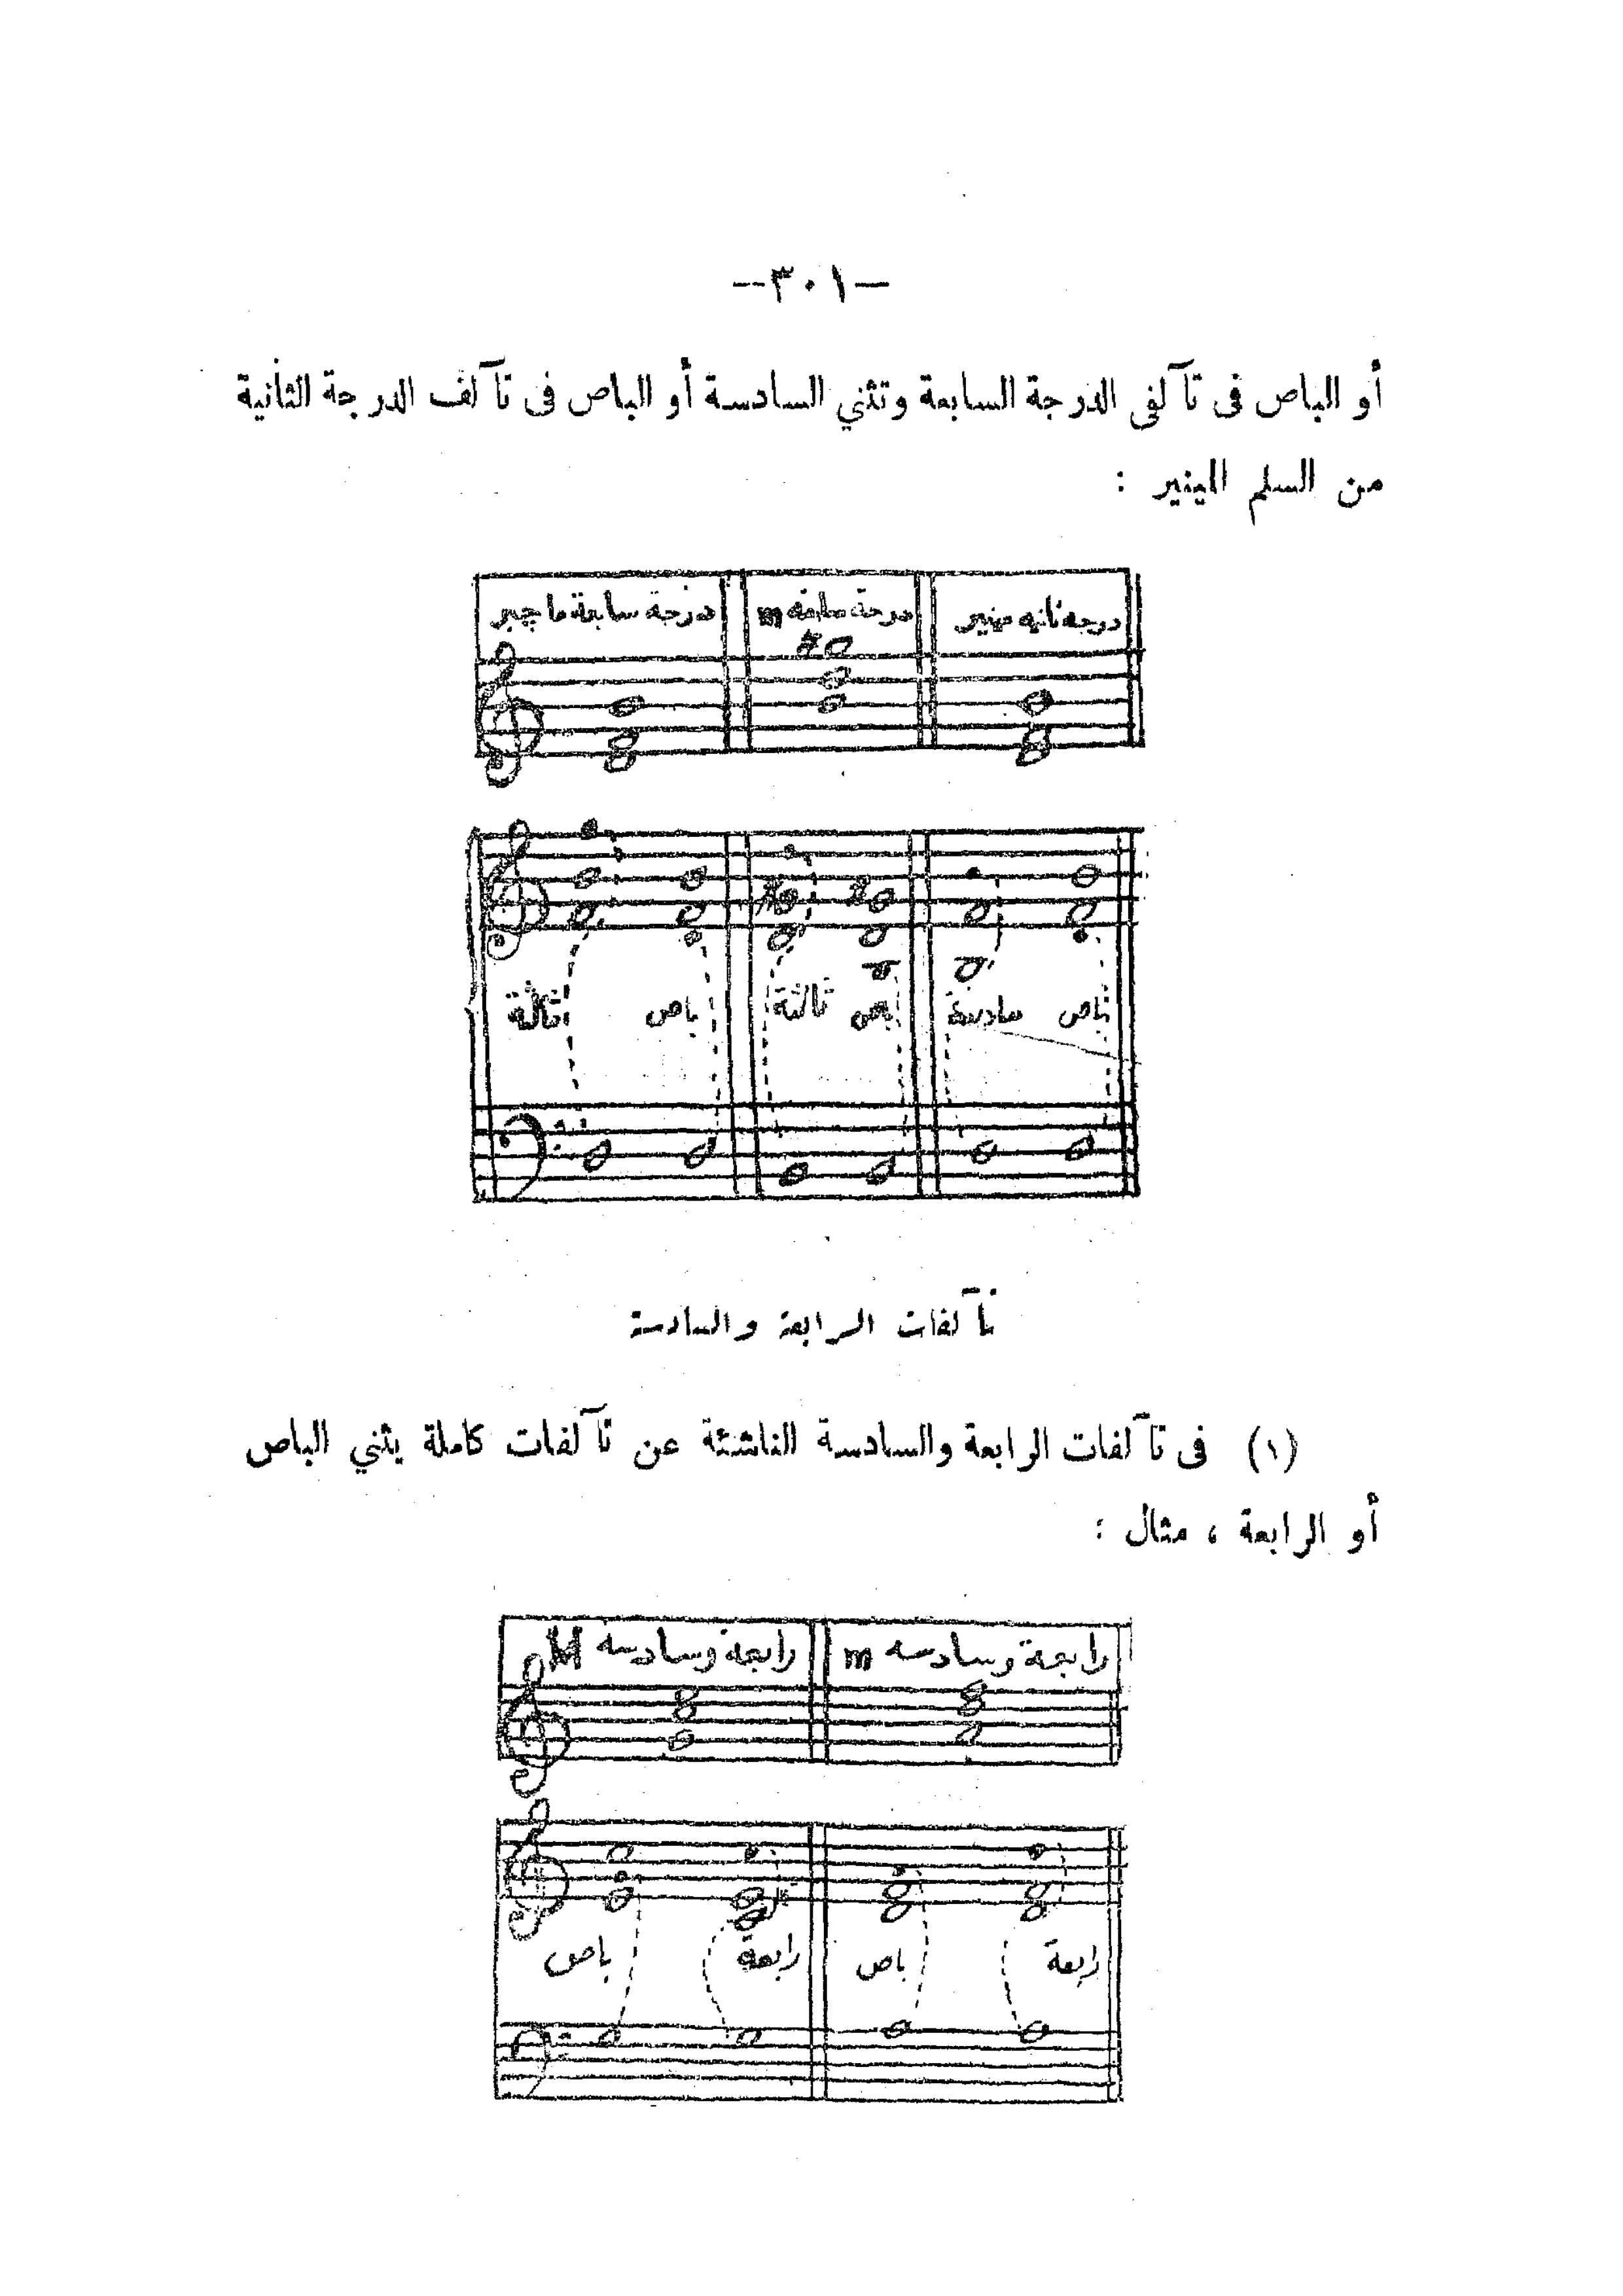 —٣٠١—
أو الباص فى تآلفى الدرجة السابعة وتثني السادسة أو الباص فى تآلف الدرجة الثانية
من السلم المينير :
درجة سابعة ماچير
درجة سابعة m
درجة ثانيه مينير
ثالثة باص ثالثة باص سادسة باص
تآلفات الرابعة والسادسة
(١) فى تآلفات الرابعة والسادسة الناشئة عن تآلفات كاملة يثني الباص
أو الرابعة ، مثال :
رابعة وسادسه M
رابعة وسادسه m
باص رابعة باص رابعة